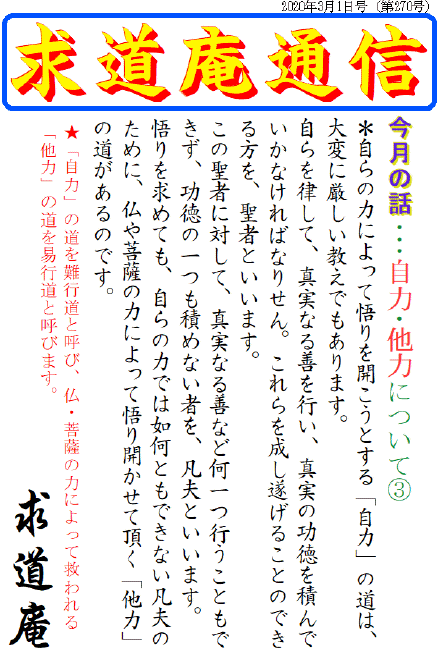 2020年3月1日号 (第270号)
求道庵通信
今月の話‥‥自力・他力について③
＊自らの力によって悟りを開こうとする「自力」の道は、
大変に厳しい教えでもあります。
自らを律して、真実なる善を行い、真実の功徳を積んで
いかなければなりせん。これらを成し遂げることのでき
る方を、聖者といいます。
この聖者に対して、真実なる善など何一つ行うこともで
きず、功徳の一つも積めない者を、凡夫といいます。
悟りを求めても、自らの力では如何ともできない凡夫の
ために、仏や菩薩の力によって悟り開かせて頂く「他力」
の道があるのです。
★「自力」の道を難行道と呼び、仏・菩薩の力によって救われる
「他力」の道を易行道と呼びます。
求道庵